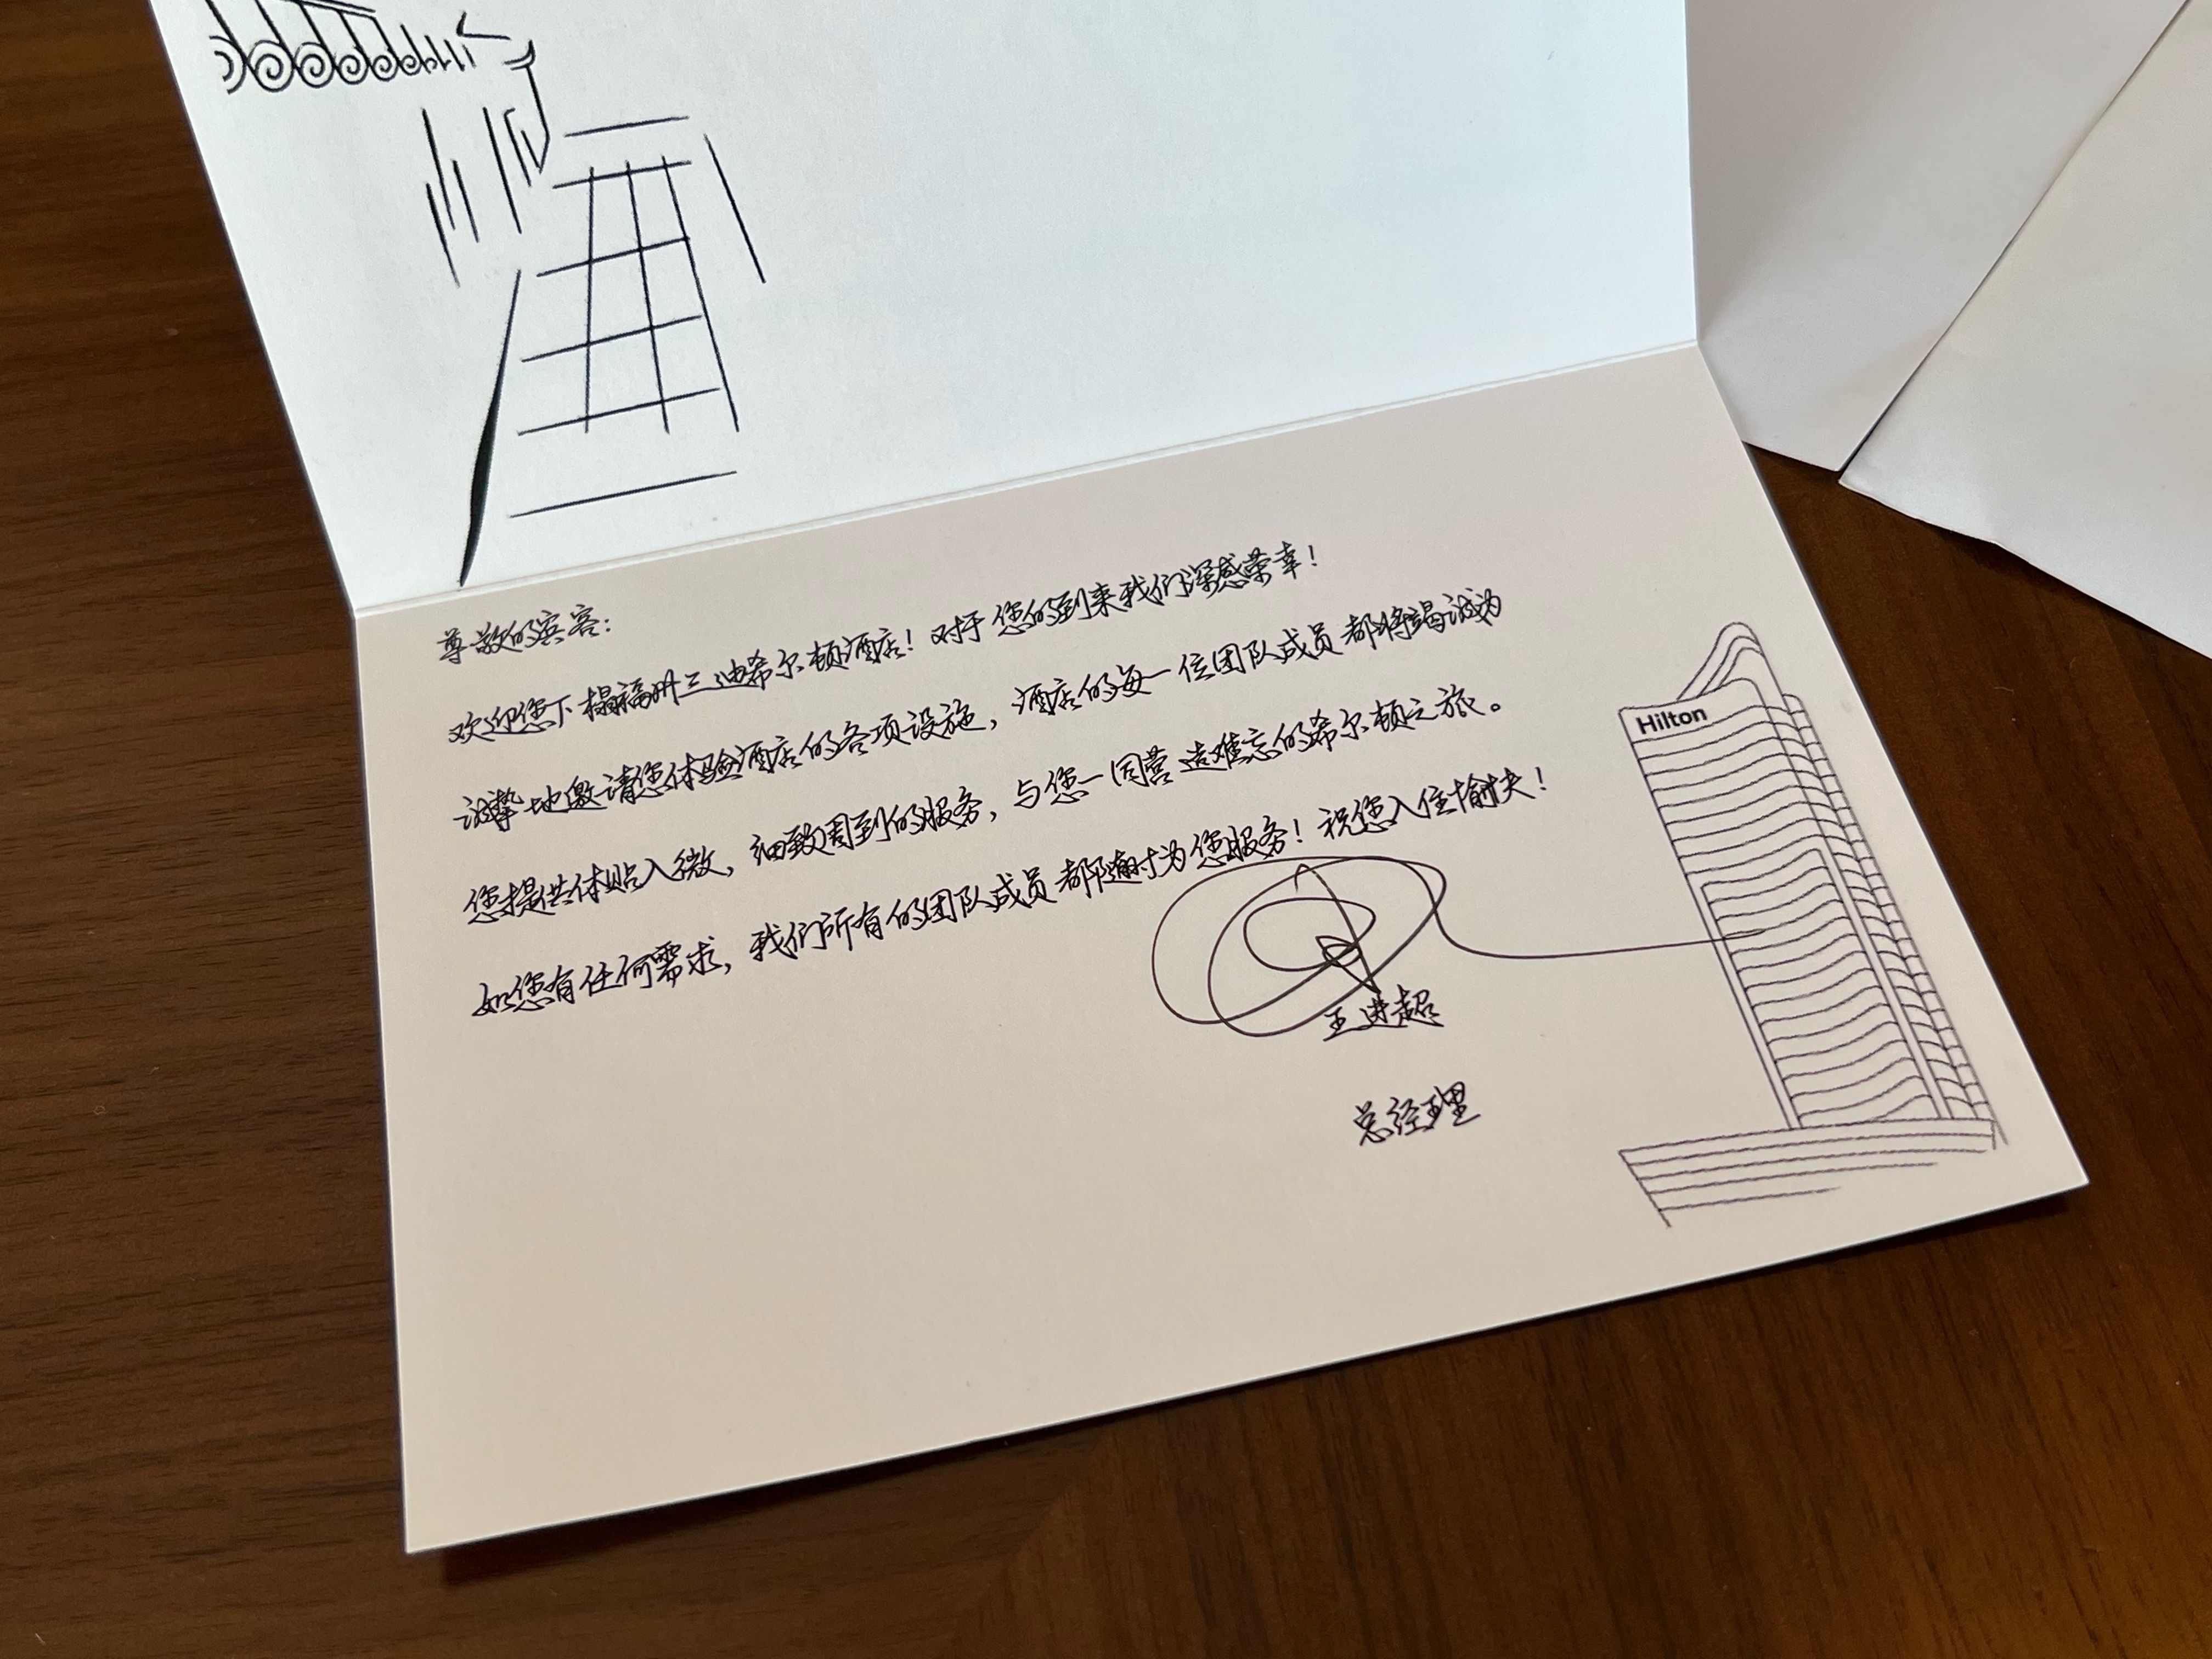 尊敬的宾客：
欢迎您下榻福州三迪希尔顿酒店！对于您的到来我们深感荣幸！
诚挚地邀请您体验酒店的各项设施，酒店的每一位团队成员都将竭诚为
您提供体贴入微，细致周到的服务，与您一同营造难忘的希尔顿之旅。
如您有任何需求，我们所有的团队成员都随时为您服务！祝您入住愉快！
王进超
总经理
Hilton